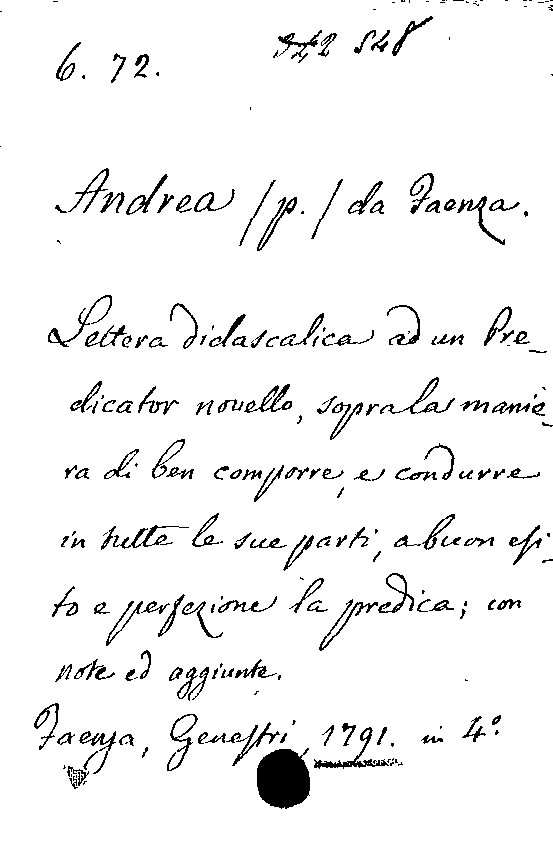 342 548
6. 72.
Andrea /p./ da Faenza.
Lettera didascalica ad un Pre-
dicator novello, sopra la manie-
ra di ben comporre, e condurre
in tutte le sue parti, a buon esi-
to e perfezione la predica; con
note ed aggiunte.
Faenza, Genestri, 1791. in 4.º